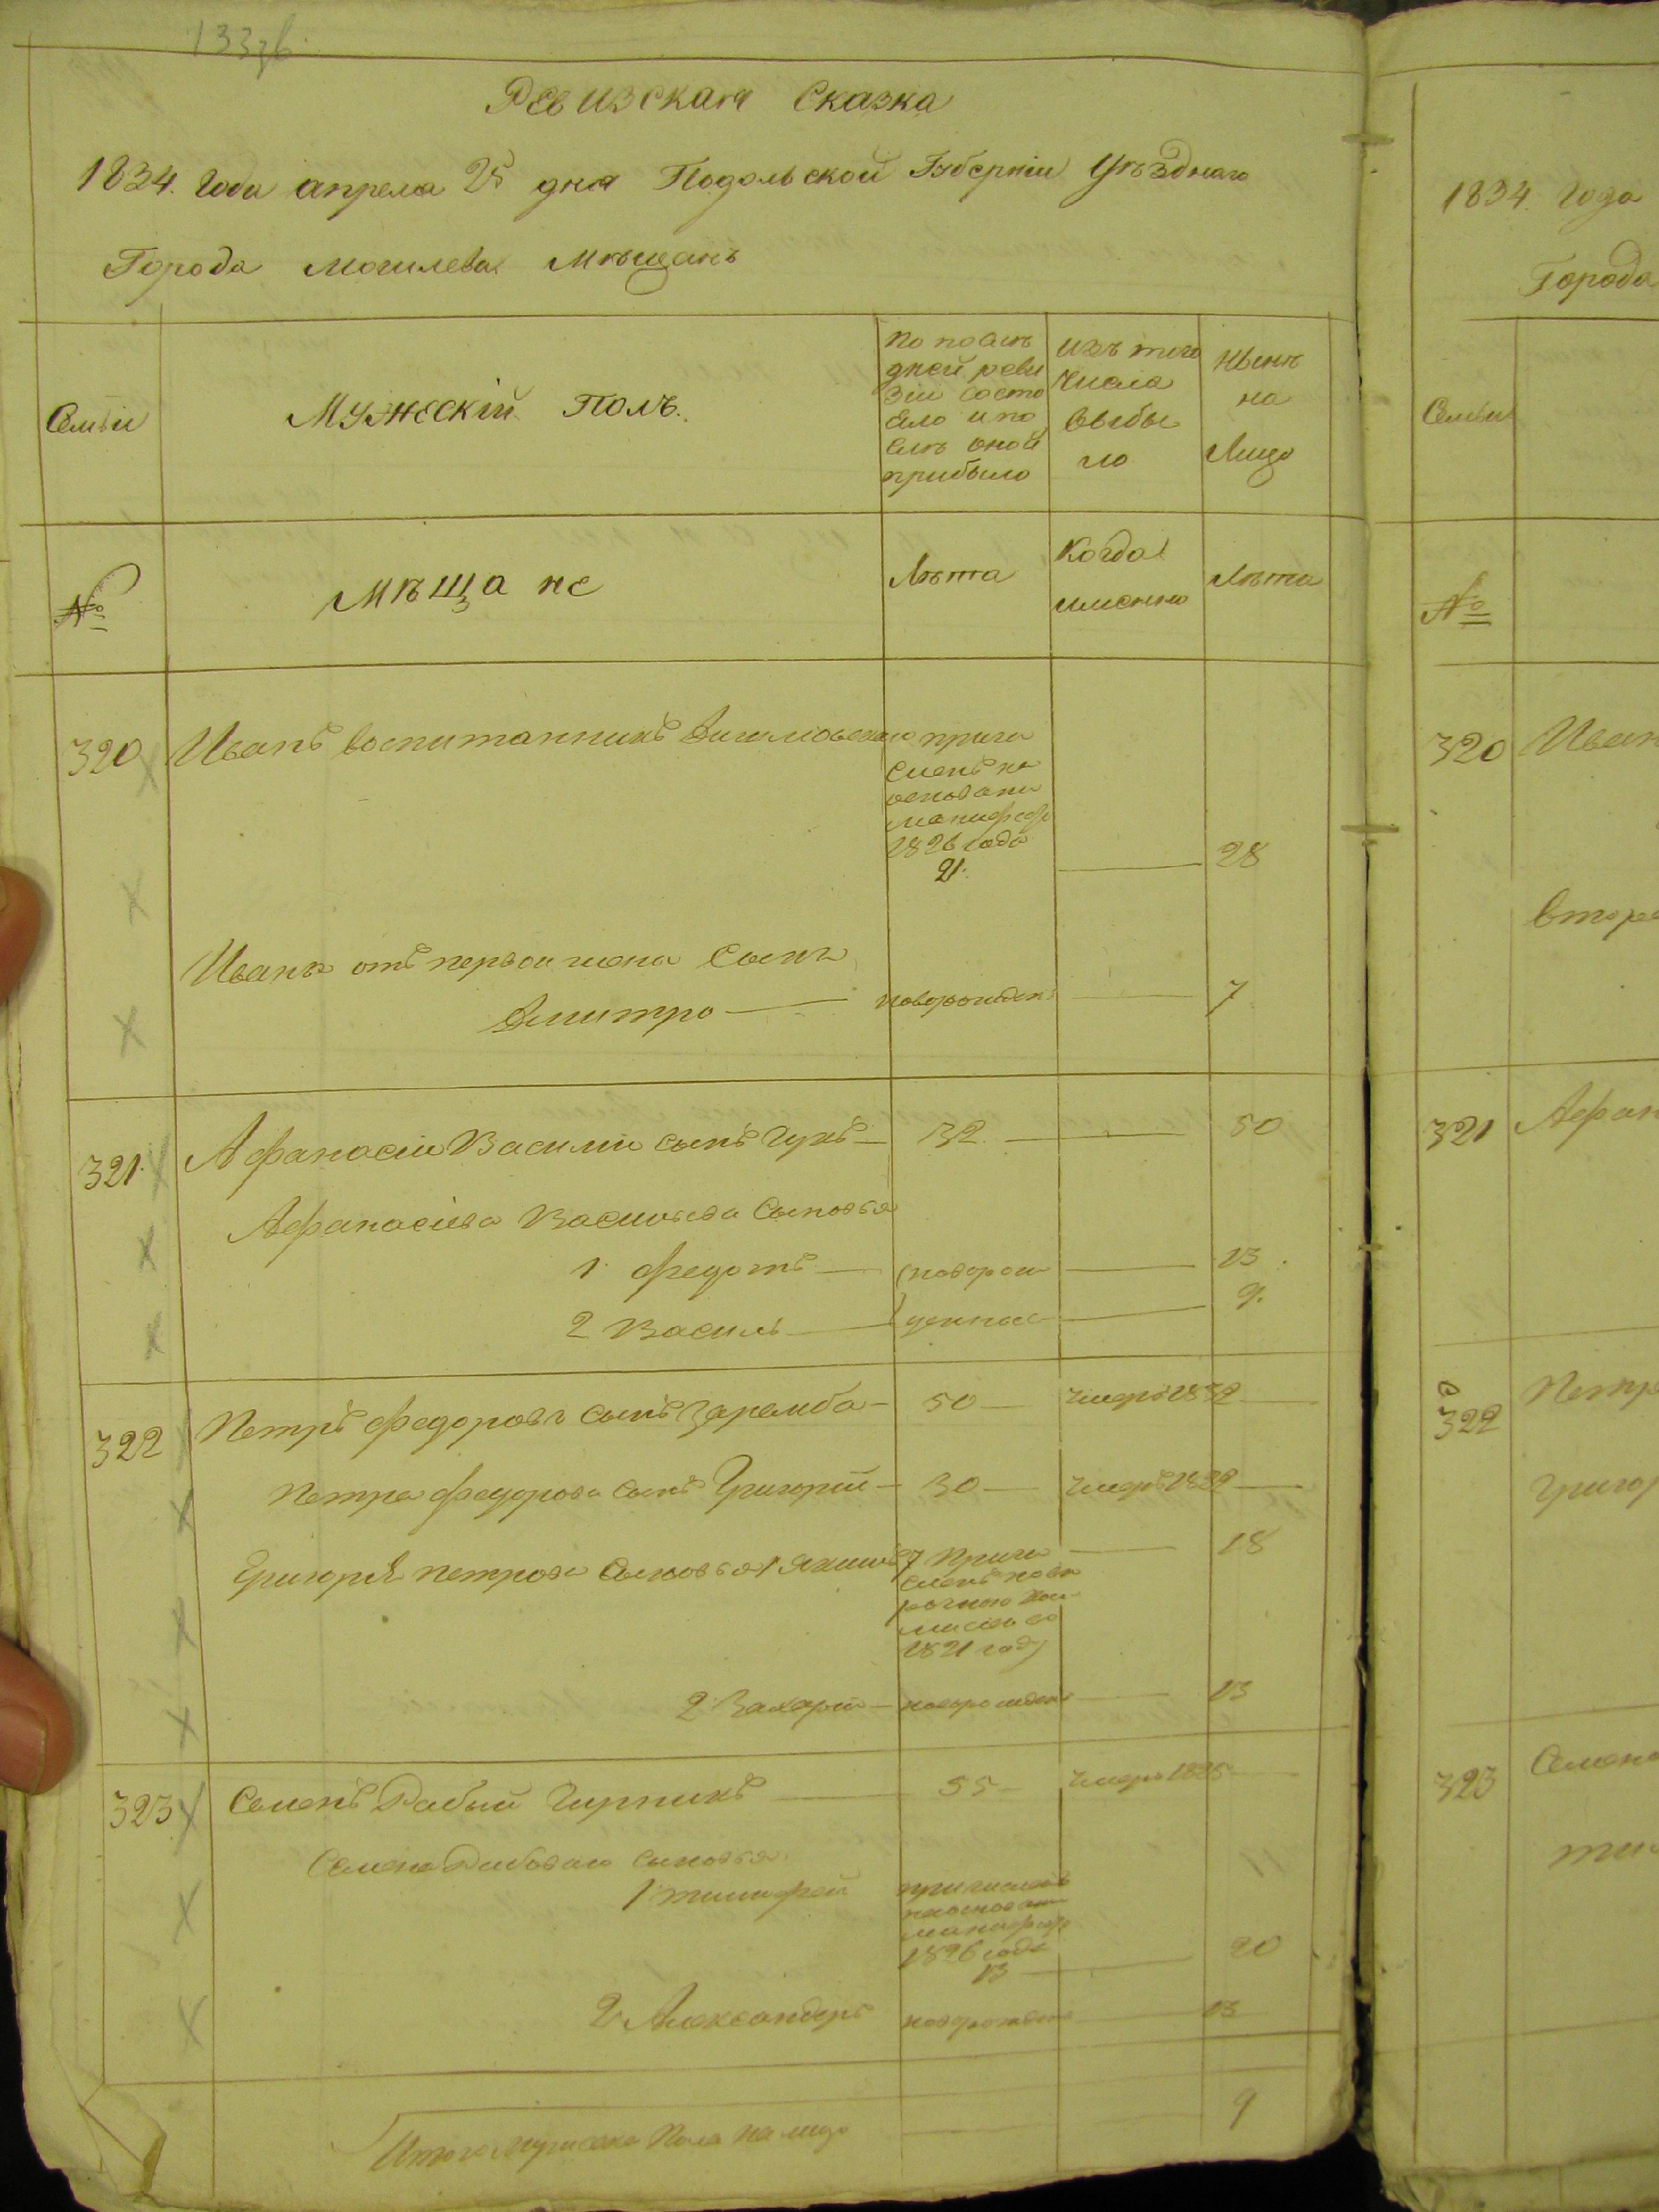 133
Ревизская Сказка
1834. года апреля 25 дня Подольской Губернiи Уѣзднаго
Города Могилева Мѣщанъ
Семьи
Мужескiй Полъ.
По послѣ
дней реви
зiи состо
яло и по
слѣ оной
прибыло
Изъ того
числа
выбы
ло
Нынѣ
на
Лицо
№
Мѣщане
Лѣта
Когда
именно
Лѣта
320 Иванъ воспитанникъ
причи
сленъ на
основани
манифеф
1826 года
21. 28
Ивана от первои жена Сынъ
Дмитро новорожден 7
321. Афанасiи Василiи сынъ Гукъ 32 50
Афанасiева Васильева Сыновья
1. Федотъ новорож 13.
2 Василь денные 9.
322 Петръ Федоровъ сынъ Заремба 50 Умеръ 1832
Петра Федорова сынъ Григорiй 30 Умеръ 1832
Григорiя Петрова Сыновья 1 Якимъ 7 Причи 18
сленъ
1821 году
2 Захарiи новорожден 13
323 Семенъ Рабый Гирникъ 55 Умеръ 1825
Семена Рабоваго сыновья
1 тимофей причисленъ
на основани
манифеф
1826 года
13 20
2 Александеръ новорожден 13
Итого Мужеска Пола на лицо 9
1834. года
Города
Семьи
№
320 Иван
втор
321 Афан
322 Петр
Григор
323 Семен